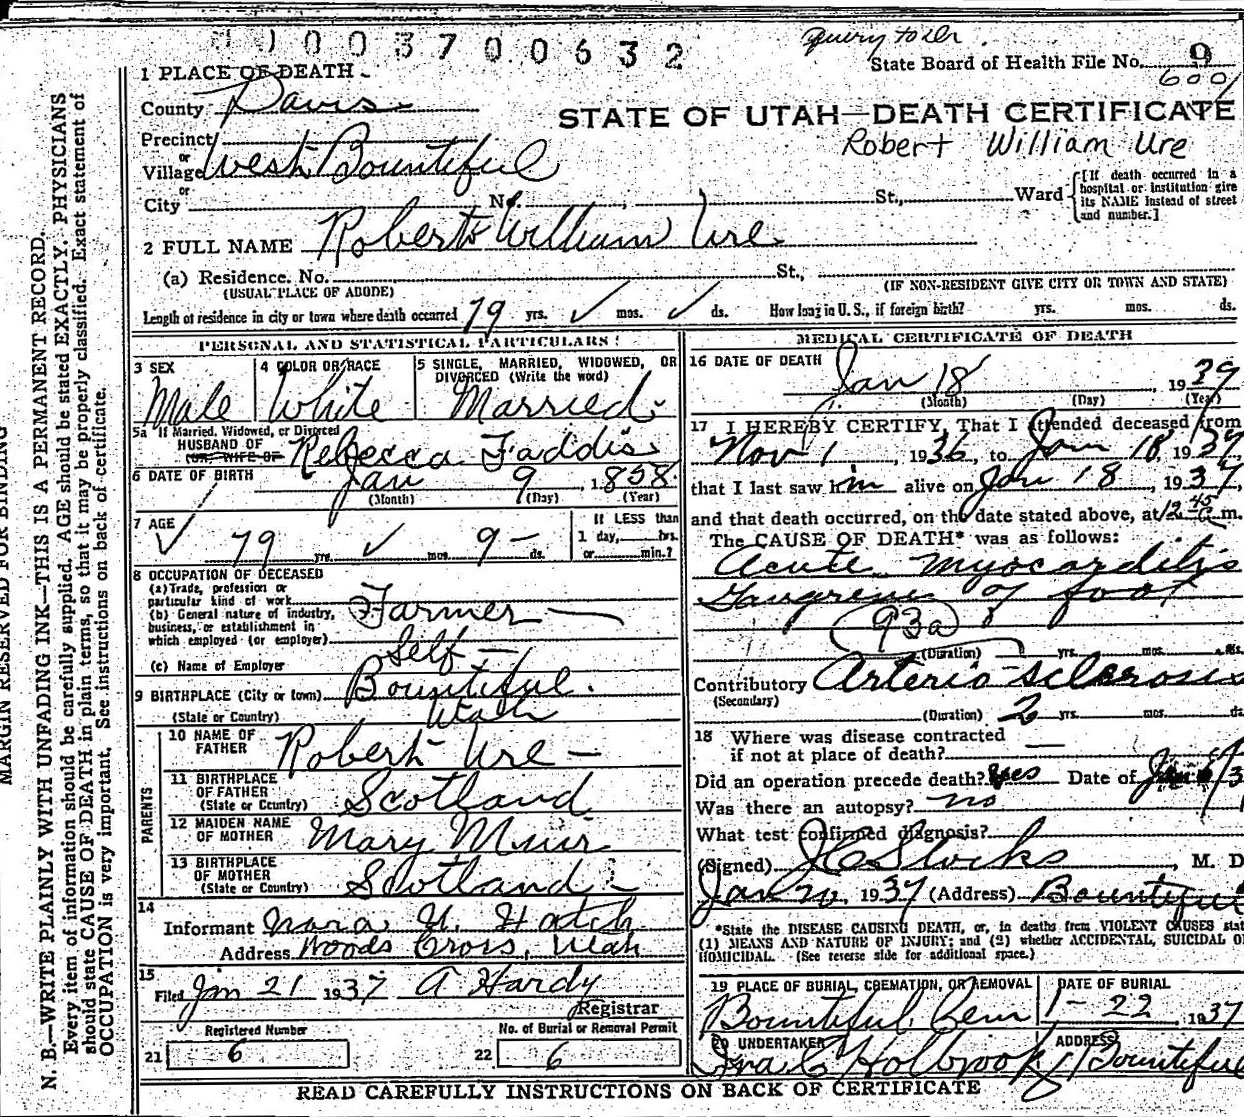 0 0 0 3 7 0 0 6 3 2
State Board of Health File No. 9
6001
1 PLACE OF DEATH
County Davis
STATE OF UTAH—DEATH CERTIFICATE
Robert William Ure
Precinct
or
Village West Bountiful
or
City No. St., Ward
[If death occurred in a hospital or institution give its NAME instead of street and number.]
2 FULL NAME Robert William Ure
(a) Residence. No. St.,
(USUAL PLACE OF ABODE) (IF NON-RESIDENT GIVE CITY OR TOWN AND STATE)
Length of residence in city or town where death occurred 79 yrs. ✓ mos. ✓ ds. How long in U. S., if foreign birth? yrs. mos. ds.
PERSONAL AND STATISTICAL PARTICULARS
3 SEX
Male
4 COLOR OR RACE
White
5 SINGLE, MARRIED, WIDOWED, OR
DIVORCED (Write the word)
Married
5a If Married, Widowed, or Divorced
HUSBAND OF
(OR) WIFE OF Rebecca Faddis
6 DATE OF BIRTH Jan 9 1858
(Month) (Day) (Year)
7 AGE
✓ 79 yrs. ✓ mos. 9 – ds.
If LESS than
1 day, hrs.
or min.?
8 OCCUPATION OF DECEASED
(a) Trade, profession or
particular kind of work Farmer
(b) General nature of industry,
business, or establishment in
which employed (or employer)
Self
(c) Name of Employer
9 BIRTHPLACE (City or town) Bountiful.
(State or Country) Utah
PARENTS
10 NAME OF
FATHER Robert Ure
11 BIRTHPLACE
OF FATHER
(State or Country) Scotland
12 MAIDEN NAME
OF MOTHER Mary Muir
13 BIRTHPLACE
OF MOTHER
(State or Country) Scotland
14
Informant Nora U. Hatch
Address Woods Cross, Utah
15
Filed Jan 21 1937 A Hardy
Registrar
Registered Number
21 6
No. of Burial or Removal Permit
22 6
MEDICAL CERTIFICATE OF DEATH
16 DATE OF DEATH Jan 18, 1937
(Month) (Day) (Year)
17 I HEREBY CERTIFY, That I attended deceased from
Nov 1, 1936, to Jan 18, 1937
that I last saw him alive on Jan 18, 1937
and that death occurred, on the date stated above, at 12 45 a m.
The CAUSE OF DEATH* was as follows:
Acute myocarditis
Gangrene of foot
93a
(Duration) yrs. mos. ds.
Contributory Arterio-sclerosis
(Secondary)
(Duration) 2 yrs. mos. ds
18 Where was disease contracted
if not at place of death? —
Did an operation precede death? Yes Date of
Was there an autopsy? no
What test confirmed diagnosis?
(Signed) Stocks, M. D
Jan 20, 1937 (Address) Bountiful
*State the DISEASE CAUSING DEATH, or, in deaths from VIOLENT CAUSES stat
(1) MEANS AND NATURE OF INJURY; and (2) whether ACCIDENTAL, SUICIDAL O
HOMICIDAL. (See reverse side for additional space.)
19 PLACE OF BURIAL, CREMATION, OR REMOVAL
Bountiful Cem
DATE OF BURIAL
1-22 1937
20 UNDERTAKER
Ira C Holbrook
ADDRESS
Bountiful
READ CAREFULLY INSTRUCTIONS ON BACK OF CERTIFICATE
MARGIN RESERVED FOR BINDING
N. B.—WRITE PLAINLY WITH UNFADING INK—THIS IS A PERMANENT RECORD.
Every item of information should be carefully supplied. AGE should be stated EXACTLY. PHYSICIANS
should state CAUSE OF DEATH in plain terms, so that it may be properly classified. Exact statement of
OCCUPATION is very important. See instructions on back of certificate.